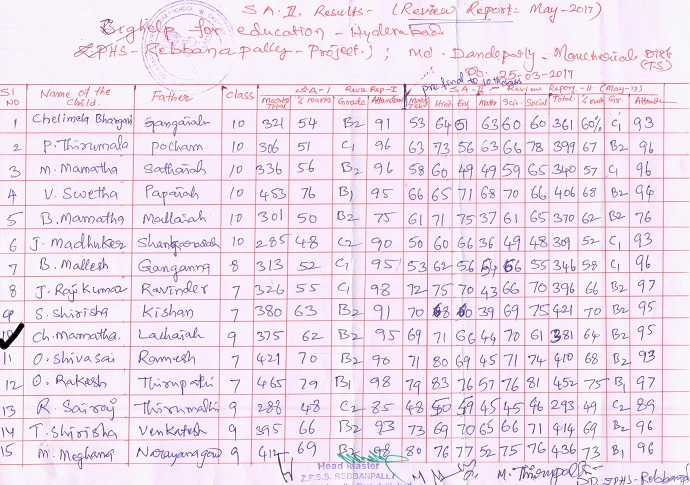 SA.II. Results - (Review Report: May-2017)
Bighelp for education - Hyderabad.
ZPHS - Rebbanapally - Project.); Md. Dandepally - Mancherial Dist (TS)
Dt. 25-03-2017
SA-I Rev. Rep-I SA-II - Review Report-II (May-17)
Sl No Name of the Child. Father Class Marks Total % Marks Grade Attendance Hindi Eng Maths Scie. Social Total % Mark Gr. Attend
1 Chelimela Gangaiah 10 321 54 B2 91 53 64 51 63 60 60 361 60% C1 93
2 P. Thirumala Pocham 10 306 51 C1 96 63 73 56 63 66 78 399 67 B2 96
3 M. Mamatha Sathaiah 10 336 56 B2 96 58 60 49 49 59 65 340 57 C1 96
4 V. Swetha Papaiah 10 453 76 B1 95 66 65 71 68 70 66 406 68 B2 94
5 B. Mamatha Mallaiah 10 301 50 B2 75 61 71 75 37 61 65 370 62 B2 76
6 J. Madhuker 10 285 48 C2 90 50 60 66 36 49 48 309 52 C1 93
7 B. Mallesh Ganganna 8 313 52 C1 95 53 62 56 54 66 55 346 58 C1 96
8 J. Raj Kumar Ravinder 7 326 55 C1 98 72 75 70 43 66 70 396 66 B2 97
9 S. Shirisha Kishan 7 380 63 B2 91 70 68 60 39 69 75 421 70 B2 95
10 Ch. Mamatha. Lachaiah 9 375 62 B2 95 69 71 66 44 70 61 381 64 B2 95
11 O. Shivasai Ramesh 7 421 70 B2 90 71 80 69 45 71 74 410 68 B2 93
12 O. Rakesh Thirupathi 7 465 79 B1 98 79 83 76 57 76 81 452 75 B1 97
13 R. Sairaj Thirumalli 9 288 48 C2 85 48 60 49 45 45 46 293 49 C2 89
14 T. Shirisha Venkatesh 9 395 66 B2 93 73 69 70 65 66 71 414 69 B2 96
15 M. Meghana Narayanagoud 9 412 69 B2 98 80 76 77 52 75 76 436 73 B1 96
Head Master
Z.P.S.S. REBBANPALLY
M. Thirupathi
ZPHS - Rebbanapally